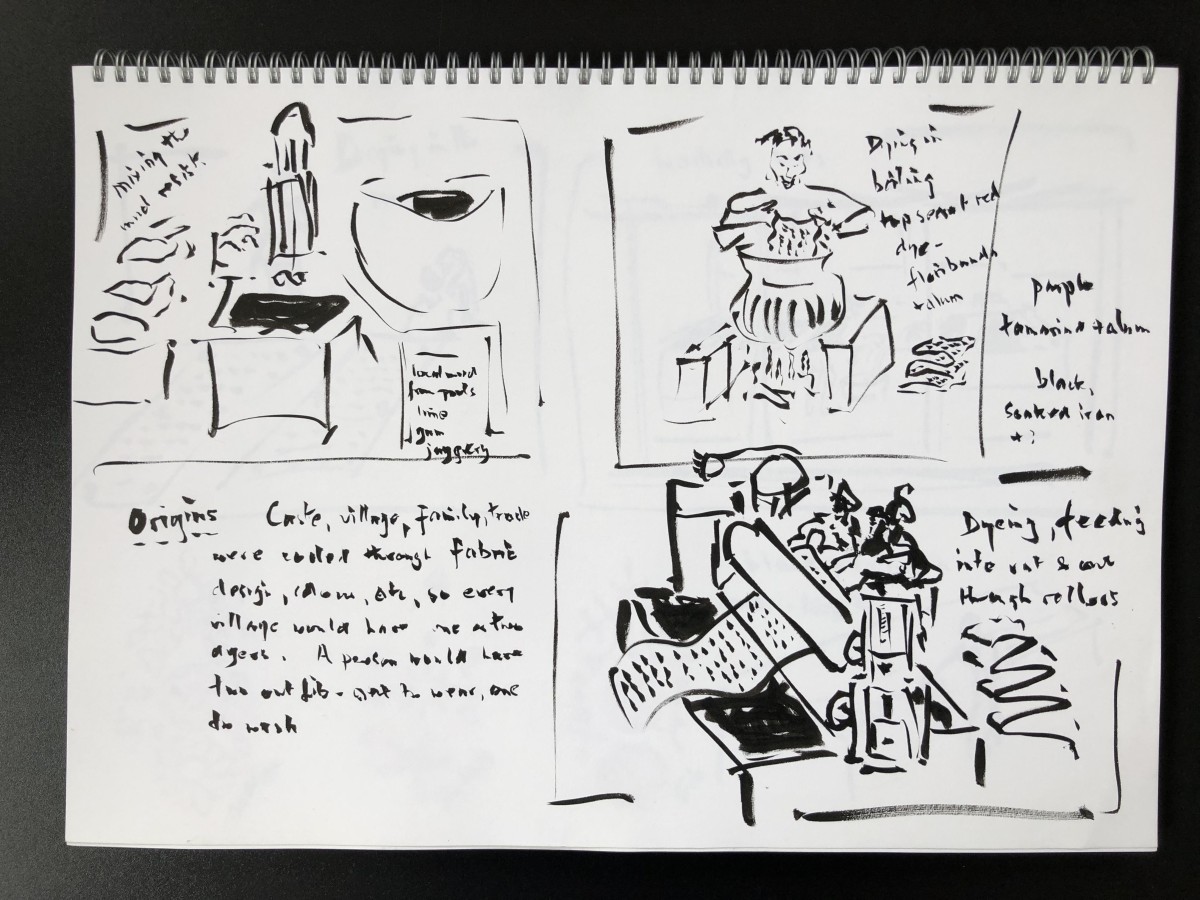 mixing the
mud resist.
local mud
from pools
lime
gum
jaggery
Dying in
boiling
red
dye -
+ alum
purple
tamarind + alum
black,
soaked iron
+ ?
Origins
Caste, village, family, trade
were coded through fabric
design, colour, etc, so every
village would have one or two
dyers. A person would have
two outfits - one to wear, one
to wash
Dyeing, feeding
into vat & out
through rollers